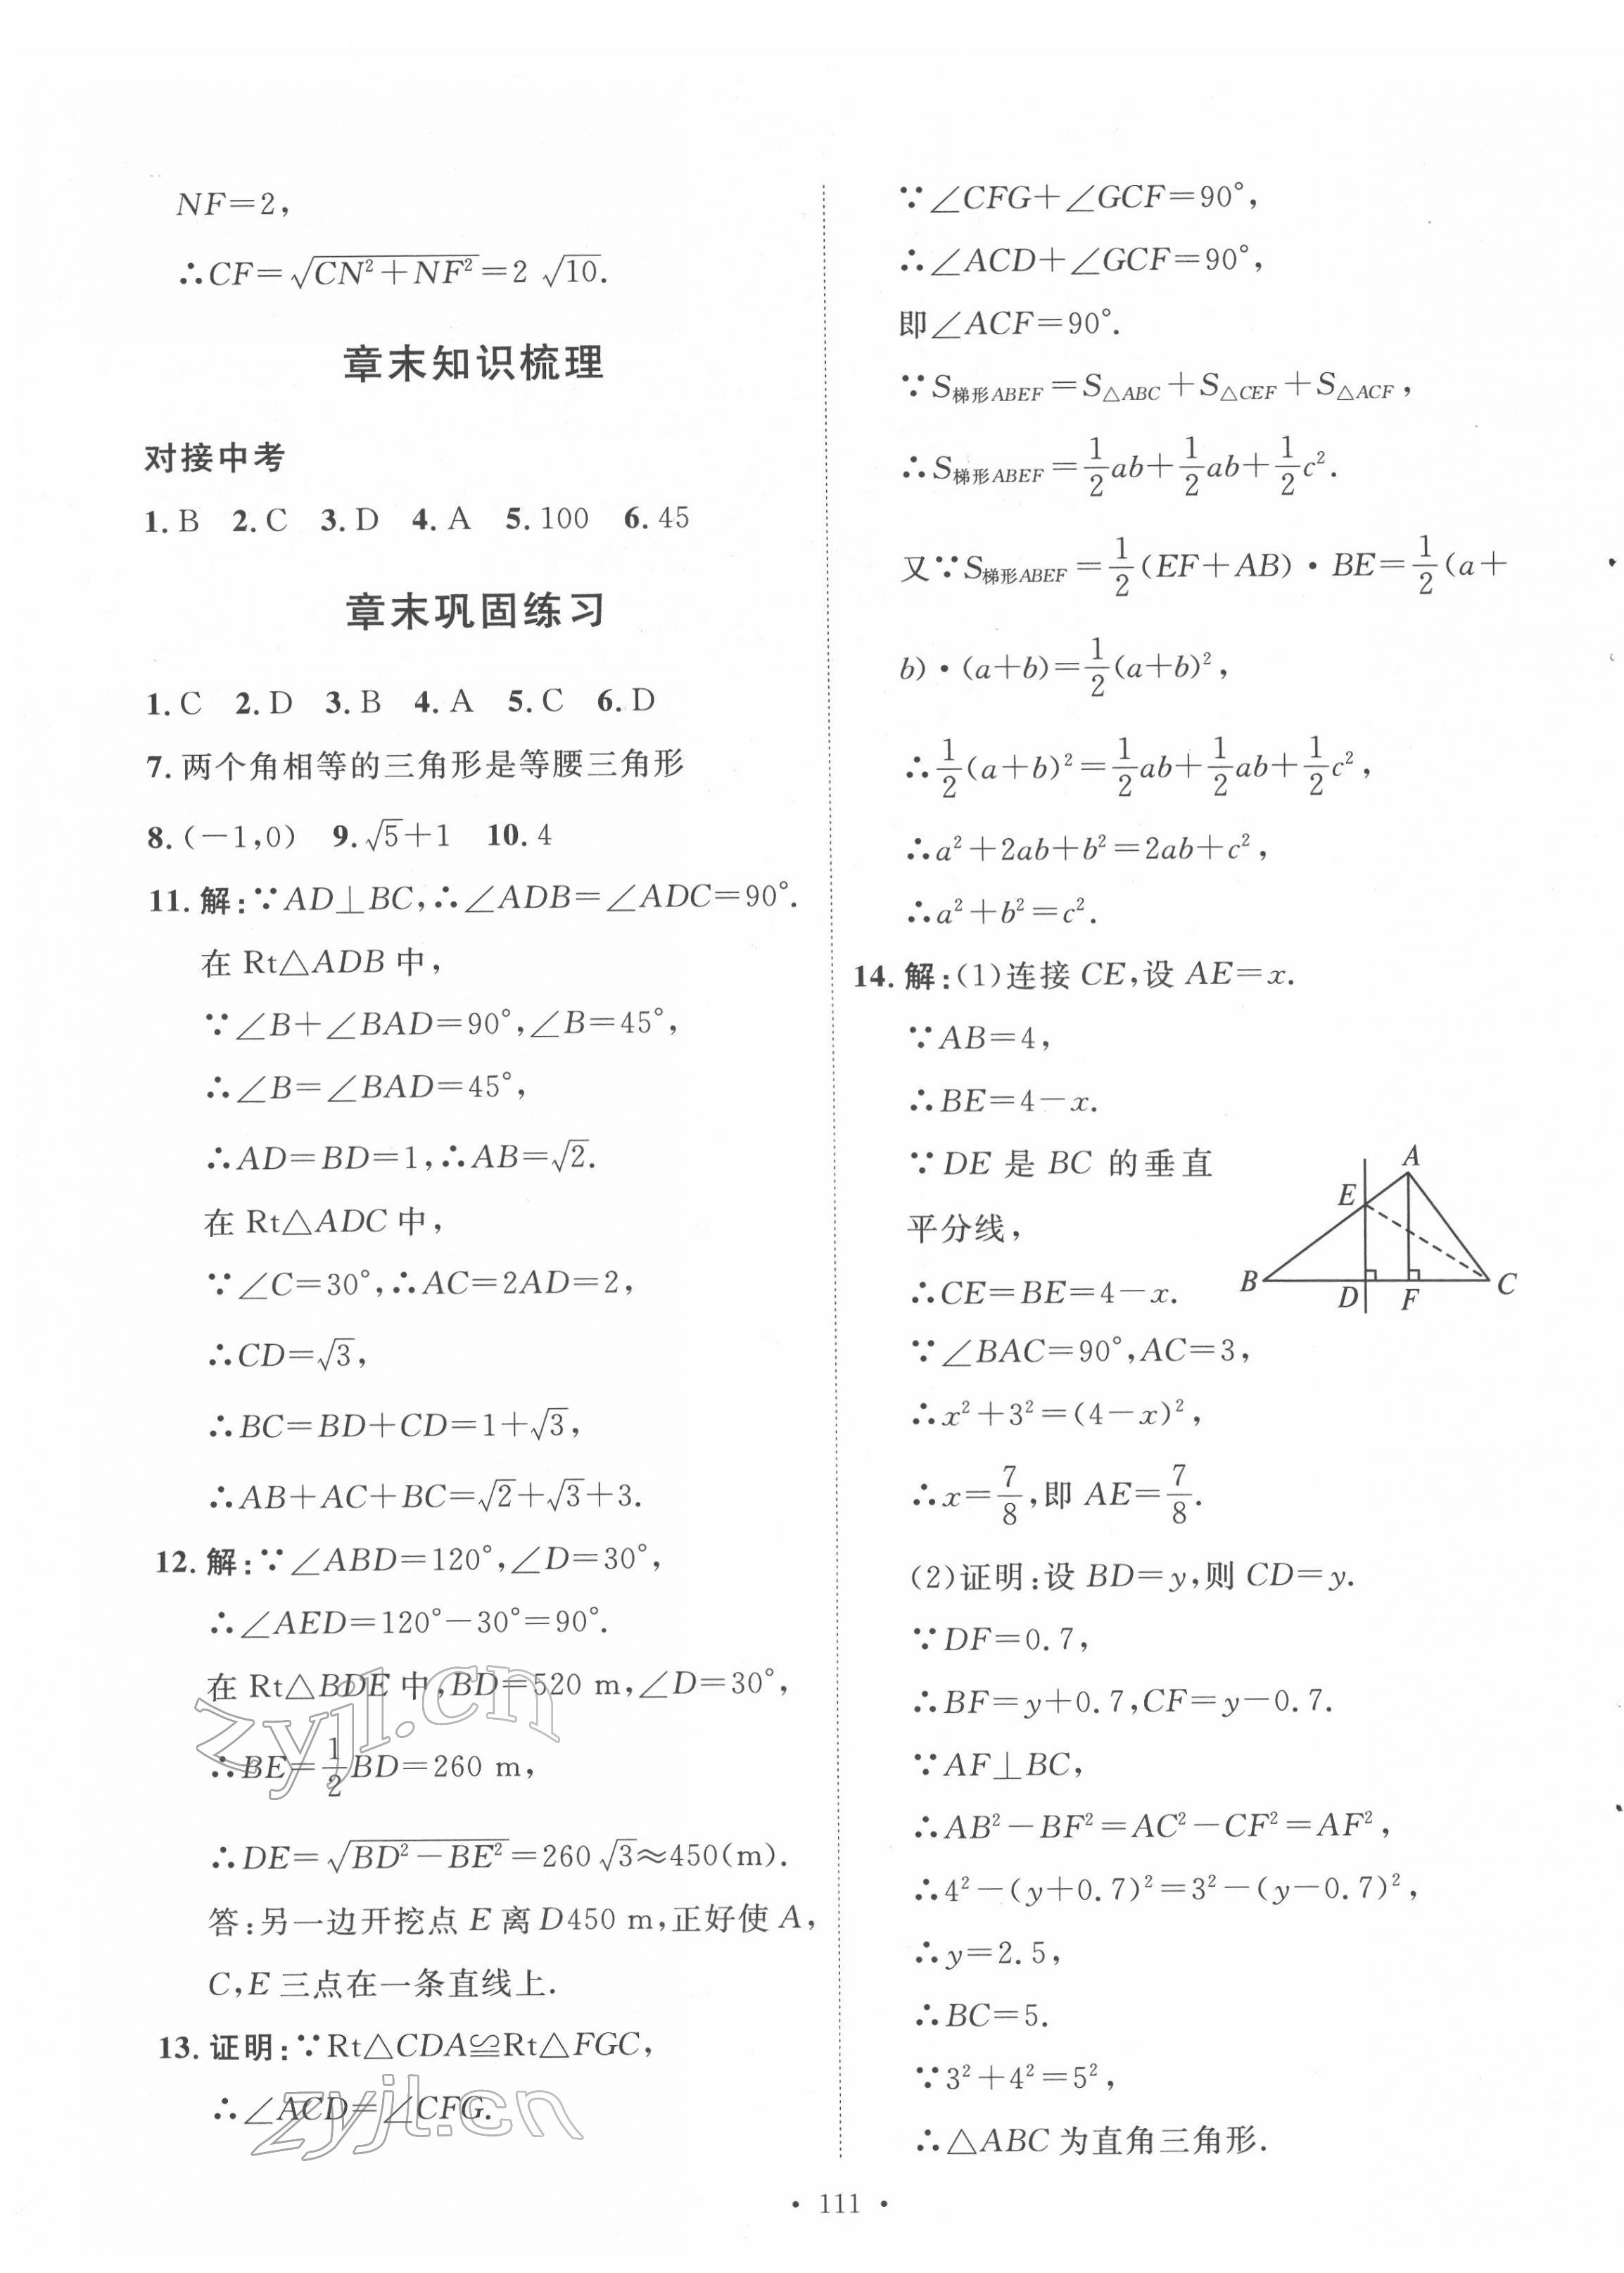 NF=2,
∴CF=√(CN²+NF²)=2 √10.
章末知识梳理
对接中考
1. B 2. C 3. D 4. A 5. 100 6. 45
章末巩固练习
1. C 2. D 3. B 4. A 5. C 6. D
7. 两个角相等的三角形是等腰三角形
8. (-1,0) 9. √5+1 10. 4
11. 解:∵AD⊥BC,∴∠ADB=∠ADC=90°.
在 Rt△ADB 中,
∵∠B+∠BAD=90°,∠B=45°,
∴∠B=∠BAD=45°,
∴AD=BD=1,∴AB=√2.
在 Rt△ADC 中,
∵∠C=30°,∴AC=2AD=2,
∴CD=√3,
∴BC=BD+CD=1+√3,
∴AB+AC+BC=√2+√3+3.
12. 解:∵∠ABD=120°,∠D=30°,
∴∠AED=120°-30°=90°.
在 Rt△BDE 中,BD=520 m,∠D=30°,
∴BE=1/2BD=260 m,
∴DE=√(BD²-BE²)=260 √3≈450(m).
答:另一边开挖点 E 离 D450 m,正好使 A,
C,E 三点在一条直线上.
13. 证明:∵Rt△CDA≌Rt△FGC,
∴∠ACD=∠CFG.
∵∠CFG+∠GCF=90°,
∴∠ACD+∠GCF=90°,
即∠ACF=90°.
∵S梯形ABEF=S△ABC+S△CEF+S△ACF,
∴S梯形ABEF=1/2ab+1/2ab+1/2c².
又∵S梯形ABEF=1/2(EF+AB)·BE=1/2(a+
b)·(a+b)=1/2(a+b)²,
∴1/2(a+b)²=1/2ab+1/2ab+1/2c²,
∴a²+2ab+b²=2ab+c²,
∴a²+b²=c².
14. 解:(1)连接 CE,设 AE=x.
∵AB=4,
∴BE=4-x.
∵DE 是 BC 的垂直
平分线,
∴CE=BE=4-x.
A
E
B
D
F
C
∵∠BAC=90°,AC=3,
∴x²+3²=(4-x)²,
∴x=7/8,即 AE=7/8.
(2)证明:设 BD=y,则 CD=y.
∵DF=0.7,
∴BF=y+0.7,CF=y-0.7.
∵AF⊥BC,
∴AB²-BF²=AC²-CF²=AF²,
∴4²-(y+0.7)²=3²-(y-0.7)²,
∴y=2.5,
∴BC=5.
∵3²+4²=5²,
∴△ABC 为直角三角形.
zyjl.cn
zyjl.cn
· 111 ·